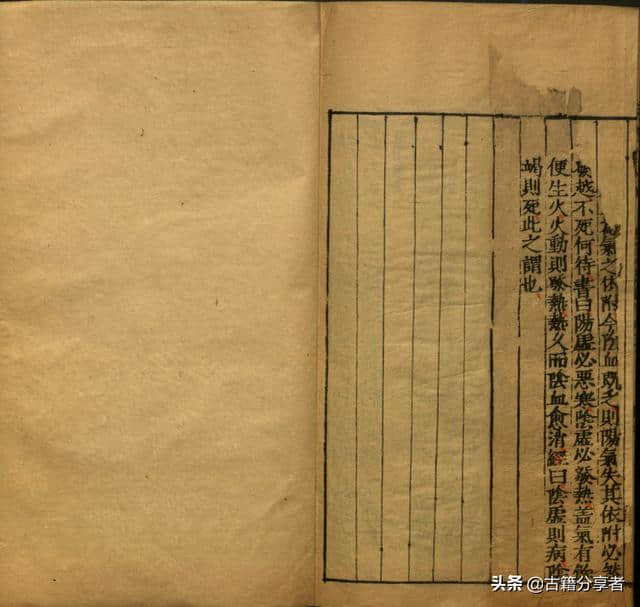 氣之依附今陰血既乏則陽氣失其依附必然
越不死何待書曰陽虛必惡寒陰虛必發熱蓋氣有餘
便生火火動則發熱熱久而陰血愈消經曰陰虛則病陰
竭則死此之謂也
头条 @古籍分享者